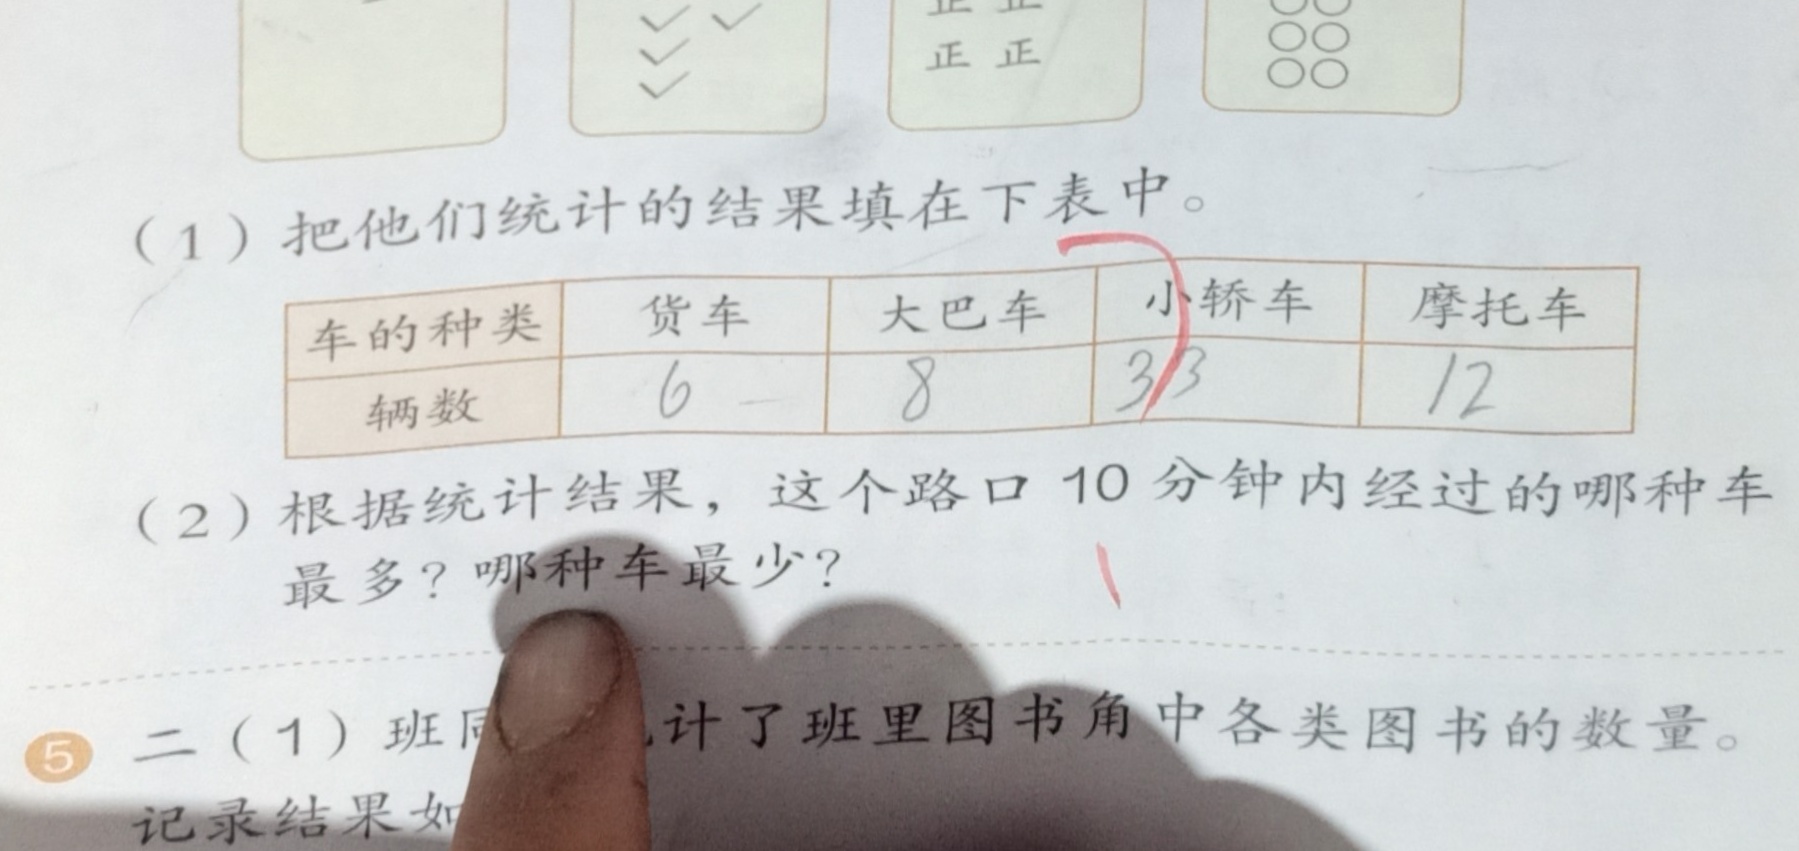 正 正
正 正
(1)把他们统计的结果填在下表中。
车的种类 货车 大巴车 小轿车 摩托车
辆数 6 8 33 12
(2)根据统计结果，这个路口 10 分钟内经过的哪种车
最多？哪种车最少？
5 二(1)班同 计了班里图书角中各类图书的数量。
记录结果如